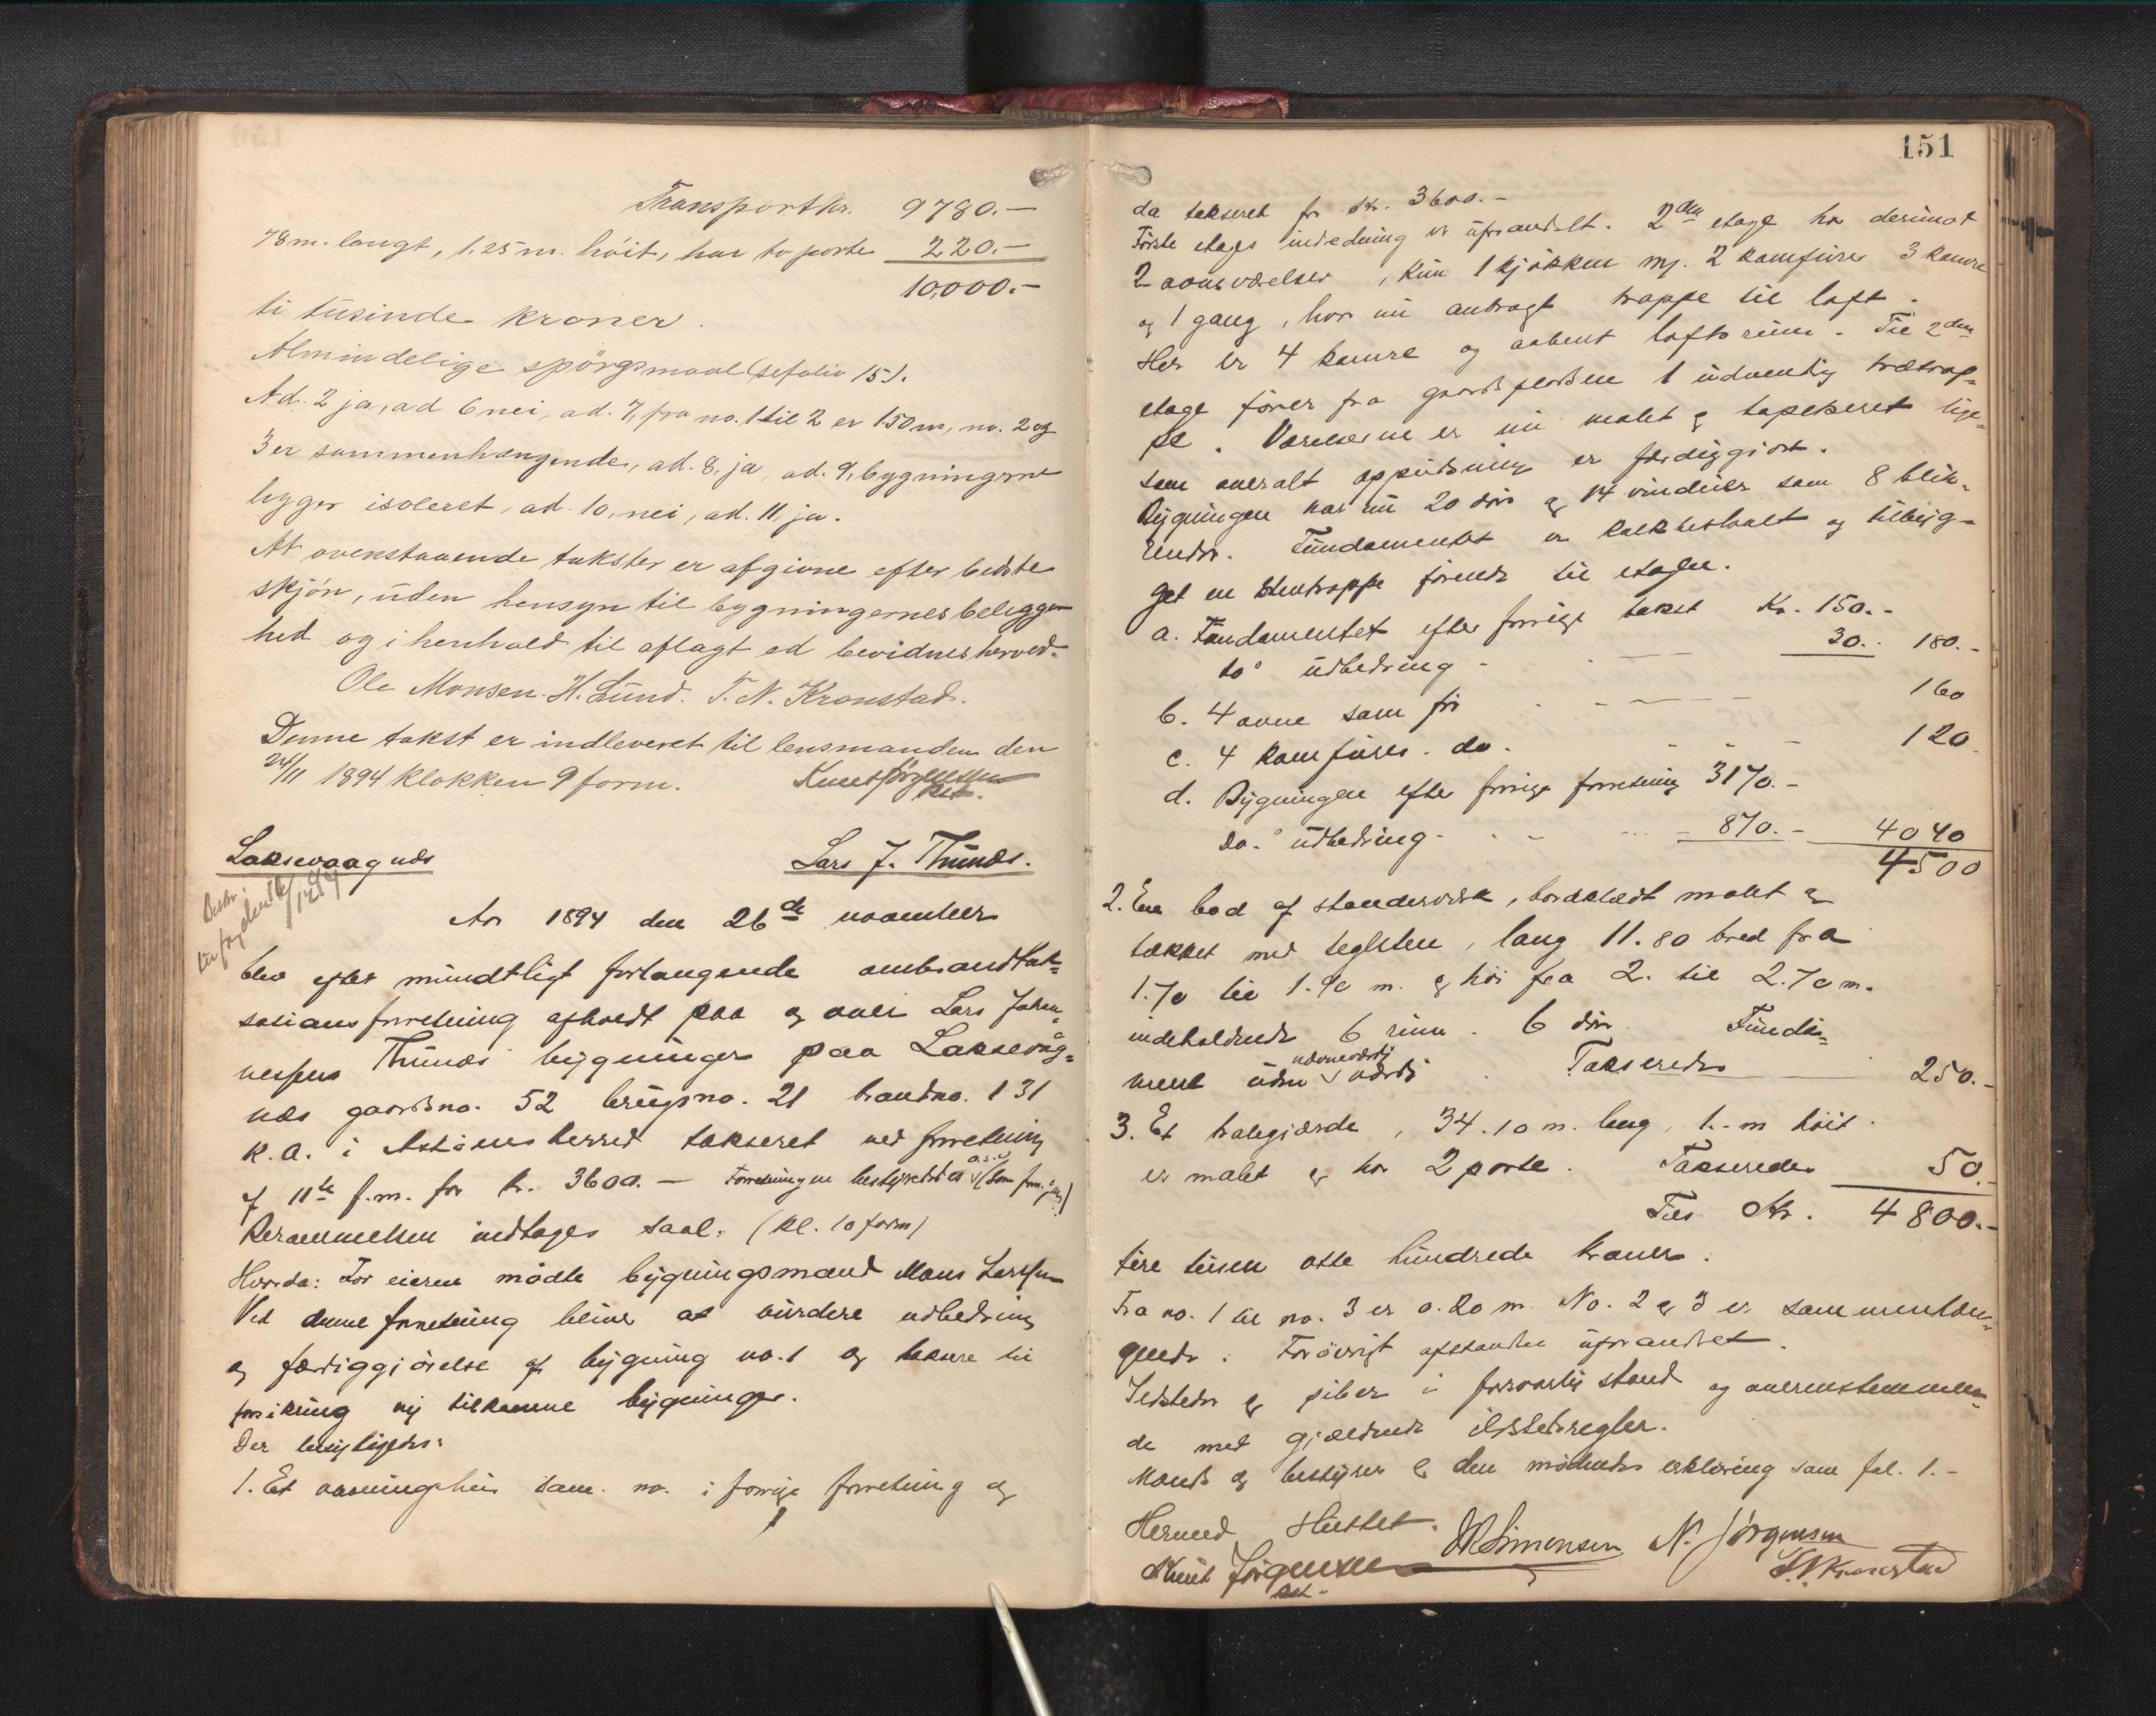 Transport kr. 9780.—
78 m. langt, 1,25 m. höit, har to porte 220.—
10,000.—
ti tusinde kroner.
Almindelige spörgsmaal (se folio 15).
Ad. 2 ja, ad 6 nei, ad. 7, fra no. 1 til 2 er 150 m, no. 2 og
3 er sammenhængende, ad. 8, ja, ad. 9, bygningerne
ligger isoleret, ad. 10, nei, ad. 11, ja.
At ovenstaaende takster er afgivne efter bedste
skjön, uden hensyn til bygningernes beliggen
hed og i henhold til aflagt ed bevidnes herved.
Ole Monsen. H. Lund. T. N. Kronstad.
Denne takst er indleveret til lensmanden den
24/11 1894 klokken 9 form. Knut Jörgensen
Laksevaagnæs Lars J. Thunæs.
Aar 1894 den 26de november
blev efter mundtligt forlangende ombrandtak-
sationsforretning afholdt paa og over Lars Johan-
nessens Thunæs bygninger paa Laksevåg-
næs gaardsno. 52 brugsno. 21 brandno. 131
K.a. i Asköens herred takseret ved forretning
f 11te f.m. for kr. 3600.— Forretningen bestyredes
Berammelsen indtages saal: (kl. 10 form)
Hvorda: For eieren mödte bygningsmand Mons Larssen
Ved denne forretning bliver at vurdere udbedring
og færdiggjörelse af bygning no. 1 og taksere til
forsikring ny tilkomne bygninger.
Der besigtigedes:
1. Et vaaningshus sam. no. i forrige forretning og
151
da takseret for kr. 3600.—
Förste etages indredning er uforandret. 2den etage har derimot
2 vaaneværelser, kun 1 kjökken m/. 2 komfurer 3 kamre
og 1 gang, hvor nu anbragt trappe til loft.
Her er 4 kamre og aabent loftsrum. Til 2den
etage förer fra gaardspladsen 1 udvendig trætrap-
pe. Værelserne er nu malet og tapetseret lige-
som overalt oppudsning er færdiggjort.
Bygningen har nu 20 dör og 14 vinduer som 8 blin-
Fundamentet er kalkbeslaaet og tilbyg-
get en stentrappe förende til etagen.
a. Fundamentet efter forrige takst Kr. 150.-
do udbedring - 30.. 180.-
b. 4 ovne som för 160
c. 4 komfurer. do. 120.
d. Bygningen efter forrige forretning 3170.-
Do. udbedring. 870.- 4040
4500
2. En bod af standerverk, bordklædt malet og
tækket med teglsten, lang 11.80 bred fra
1.70 til 1.90 m. og höi fra 2. til 2.70 m.
indeholdende 6 rum. 6 dör. Funda-
ment uden nævneværdig værdi. Takseredes 250.-
3. Et trægjærde, 34.10 m. lang, 1.- m höit.
er malet og har 2 porte. Takseredes 50.-
Tils. Kr. 4800.-
fire tusen otte hundrede kroner.
Fra no. 1 til no. 3 er 0.20 m. No. 2 og 3 er sammenhæn-
gende. Forövrigt afstanden uforandret.
Ildsteder og piber i forsvarlig stand og overensstemmen-
de med gjældende ildstedsregler.
Mænds og bestyrer & den mödendes erklæring som fol. 1.-
Hermed sluttet.
Knut Jörgensen Simonsen N. Jörgensen
T. N. Kronstad